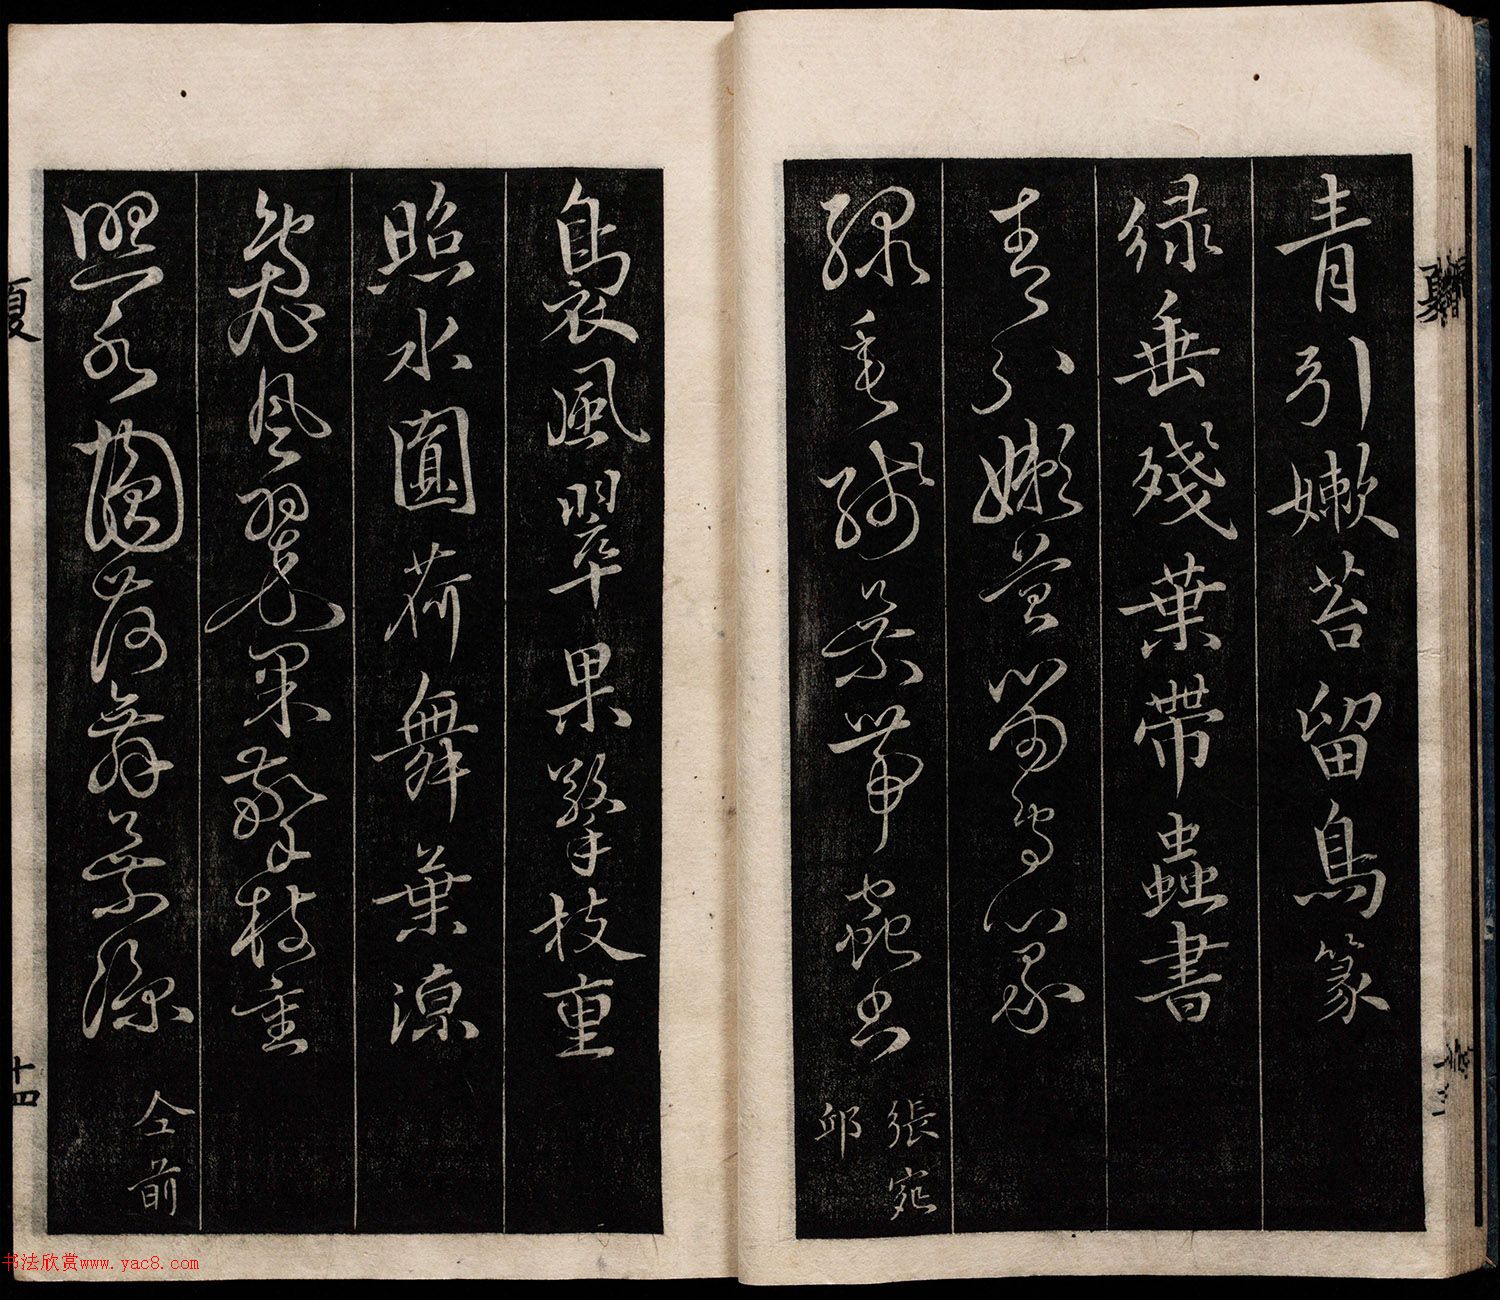 青引嫩苔留鳥篆
緑垂殘葉帶蟲書
青引嫩苔留鳥篆
緑垂殘葉帶蟲書
張宛
邱
裊風翠果擎枝重
照水圓荷舞葉凉
裊風翠果擎枝重
照水圓荷舞葉凉
仝前
夏
十四
书法欣赏www.yac8.com